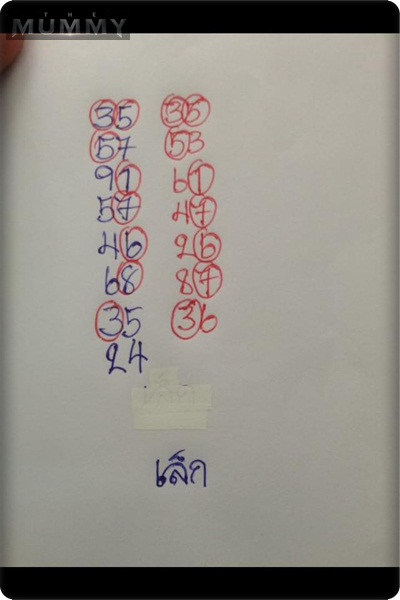 THE
MUMMY
35 35
57 53
91 61
57 47
46 26
68 87
35 36
24
เล็ก